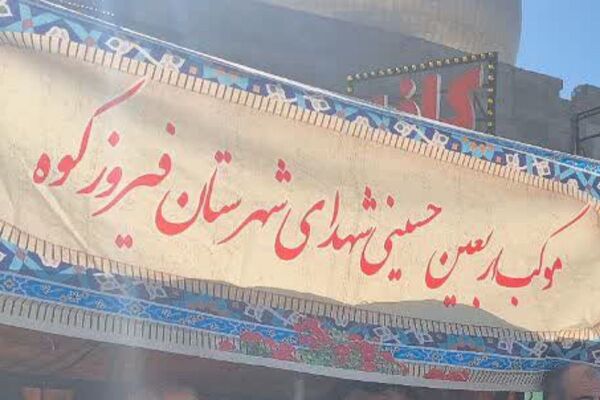 موکب اربعین حسینی شهدای شهرستان فیروزکوه